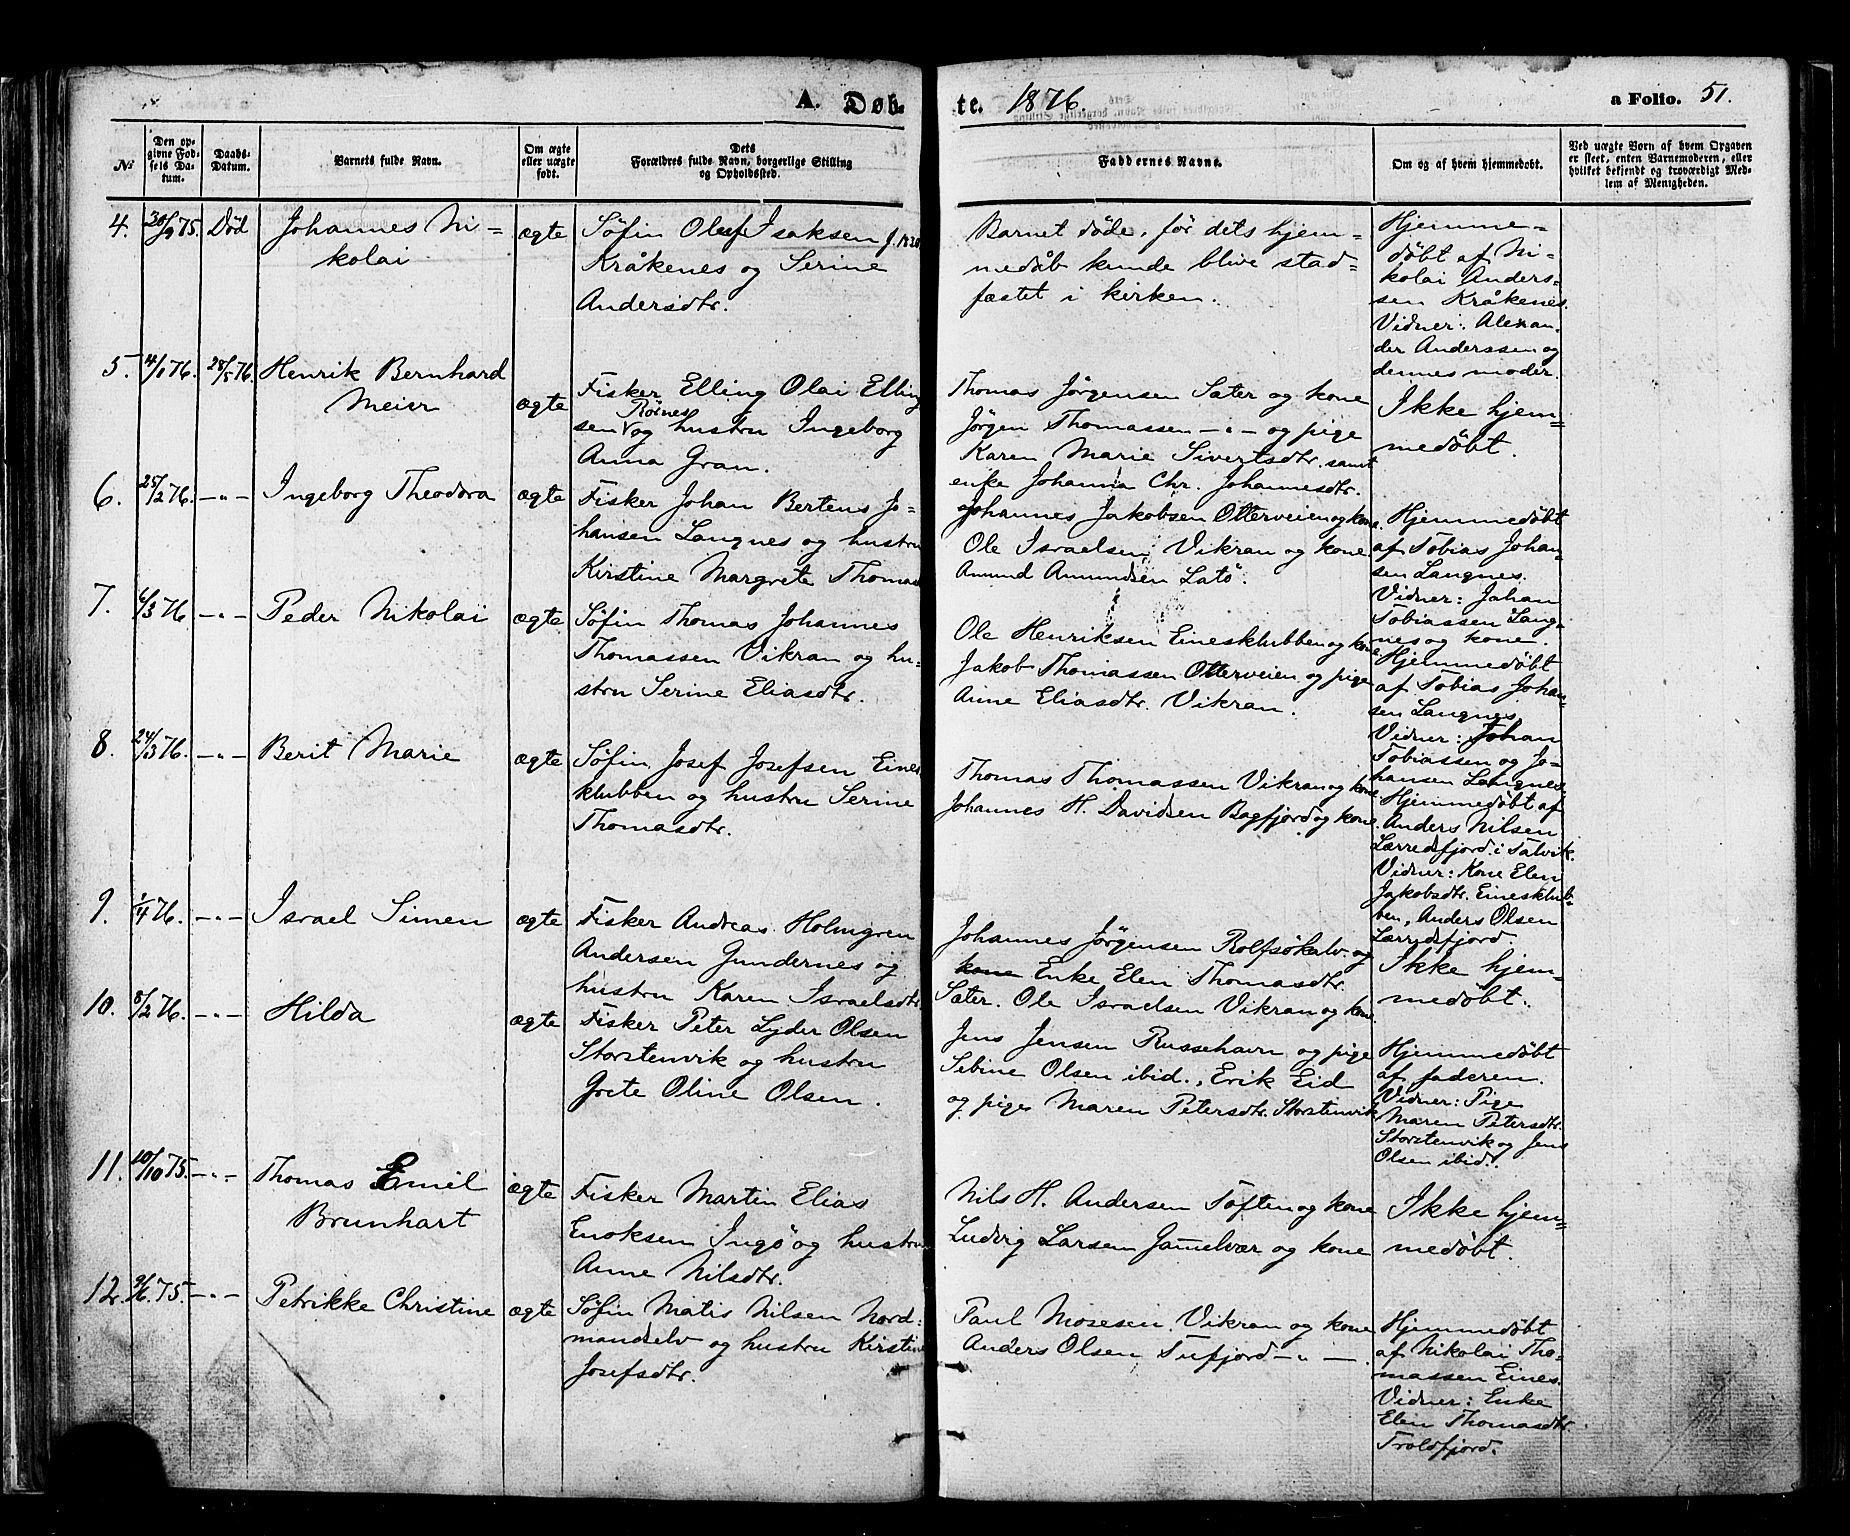 A. Døb- te. 1876. a Folio. 51.
№
Den op-
givne Fød-
sels Da-
tum.
Daabs-
Datum.
Barnets fulde Navn.
Om ægte
eller uægte
født.
Dets
Forældres fulde Navn, borgerlige Stilling
og Opholdssted.
Faddernes Navne.
Om og af hvem hjemmedøbt.
Ved uægte Børn af hvem Opgaven
er skeet, enten Barnemoderen, eller
hvilket bekjendt og troværdigt Med-
lem af Menigheden.
4.
30/9 75.
Død
Johannes Ni-
kolai
ægte
Søfin Oluf Isaksen
Kråkenes og Serine
Andersdtr.
Barnet døde, før dets hjem-
medåb kunde blive stad-
fæstet i kirken.
Hjemme-
døbt af Ni-
kolai Anders-
sen Kråkenes.
Vidner: Alexan-
der Anderssen og
dennes moder.
5.
4/1 76.
28/5 76.
Henrik Bernhard
Meier
ægte
Fisker Elling Olai Elling
Rosnes
sen og hustru Ingeborg
Anna Gran.
Thomas Jørgensen Sater og kone
Jörgen Thomassen -"- og pige
Karen Marie Sivertsdtr. samt
enke Johanna Chr. Johannesdtr.
Ikke hjem-
medøbt.
6.
25/2 76.
-"-
Ingeborg Theodora
ægte
Fisker Johan Bertens Jo-
hansen Langnes og hustru
Kirstine Margrete Thomas
Johannes Jakobsen Otterveien og kone.
Ole Israelsen Vikran og kone
Amund Amundsen Latö.
Hjemmedøbt
af Tobias Johan-
sen Langnes.
Vidner: Johan
Tobiassen Lang-
nes og kone.
7.
6/3 76
-"-
Peder Nikolai
ægte
Søfin Thomas Johannes
Thomassen Vikran og hu-
stru Serine Eliasdtr.
Ole Henriksen Einesklubben og kone
Jakob Thomassen Otterveien og pige
Anne Eliasdtr. Vikran.
Hjemmedøbt
af Tobias Johan-
sen Langnes
Vidner: Johan
Tobiassen og Jo-
hansen Langnes.
8.
24/3 76.
-"-
Berit Marie
ægte
Søfin Josef Josefsen Eines
klubben og hustru Serine
Thomasdtr.
Thomas Thomassen Vikran og kone
Johannes H. Davidsen Bagfjord og kone.
Hjemmedøbt af
Anders Nilsen
Lerresfjord i Talvik.
Vidner: Kone Elen
Jakobsdtr. Einesklub-
ben, Anders Olsen
Lerresfjord.
9.
1/4 76.
-"-
Israel Simen
ægte
Fisker Andreas Holmgren
Andersen Gundernes og
hustru Karen Israelsdtr.
Johannes Jörgensen Rolfsökalv. og
kone Enke Elen Thomasdtr.
Sater. Ole Israelsen Vikran og kone
Ikke hjem-
medöbt.
10.
8/2 76.
-"-
Hilda
ægte
Fisker Peter Lyder Olsen
Storstenvik og hustru
Grete Oline Olsen.
Jens Jensen Russehavn og pige
Sebine Olsen ibid., Erik Eid
og pige Maren Petersdtr. Storstenvik
Hjemmedøbt
af faderen.
Vidner: Pige
Maren Petersdtr.
Storstenvik og Jens
Olsen ibid.
11.
20/10 75.
-"-
Thomas Emil
Brunhart
ægte
Fisker Martin Elias
Enoksen Ingö og hustru
Anne Nilsdtr.
Nils H. Andersen Toften og kone
Ludvig Larsen Gamelvær og kone
Ikke hjem-
medøbt.
12.
9/6 75.
-"-
Petrikke Christine
ægte
Søfin Matis Nilsen Nord-
mandselv og hustru Kirstine
Josefsdtr.
Paul Mosesen Vikran og kone
Anders Olsen Tufjord -"-.
Hjemmedøbt
af Nikolai Tho-
massen Eines.
Vidner: Enke
Elen Thomasdtr.
Troldfjord.